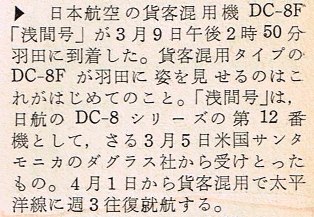 ▶ 日本航空の貨客混用機 DC-8F
「浅間号」が3月9日午後2時50分
羽田に到着した。貨客混用タイプの
DC-8F が羽田に姿を見せるのはこ
れがはじめてのこと。「浅間号」は,
日航の DC-8 シリーズの第 12 番
機として, さる3月5日米国サンタ
モニカのダグラス社から受けとった
もの。4月1日から貨客混用で太平
洋線に週3往復就航する。